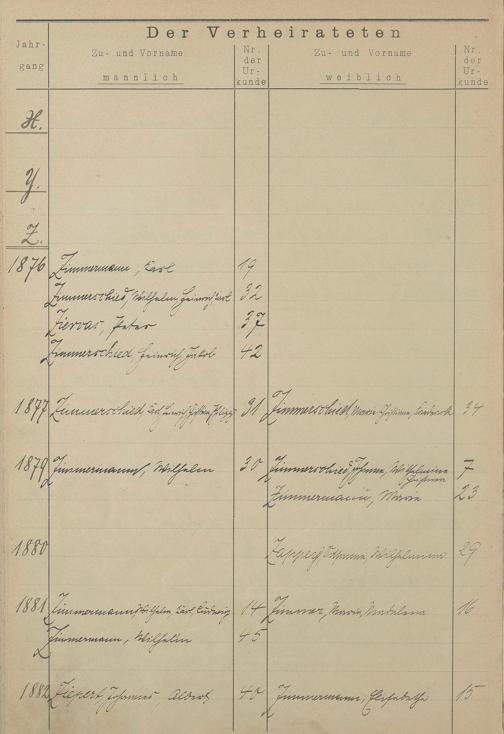 Der Verheirateten
Jahr-
gang
Zu- und Vorname
männlich
Nr.
der
Ur-
kunde
Zu- und Vorname
weiblich
Nr.
der
Ur-
kunde
Y.
Z.
1876 Zimmermann, Carl 19
Zimmerschied, Wilhelm Heinrich Carl 32
Ziervas, Peter 37
Zimmerschied Heinrich Jakob 42
1877 Zimmerschied, 31 Zimmerschied, Maria Christiane, 34
1879 Zimmermann, Wilhelm 30 Zimmerschied, Johanna, Wilhelmine 7
Christina
Zimmermann, Maria 23
1880 Wilhelmine 29
1881 Zimmermann, Wilhelm, Carl, Ludwig 14 Zimmer, Maria, Madalena 16
Zimmermann, Wilhelm 45
1882 Ziepert, Johannes, Albert 40 Zimmermann, Elisabethe 15